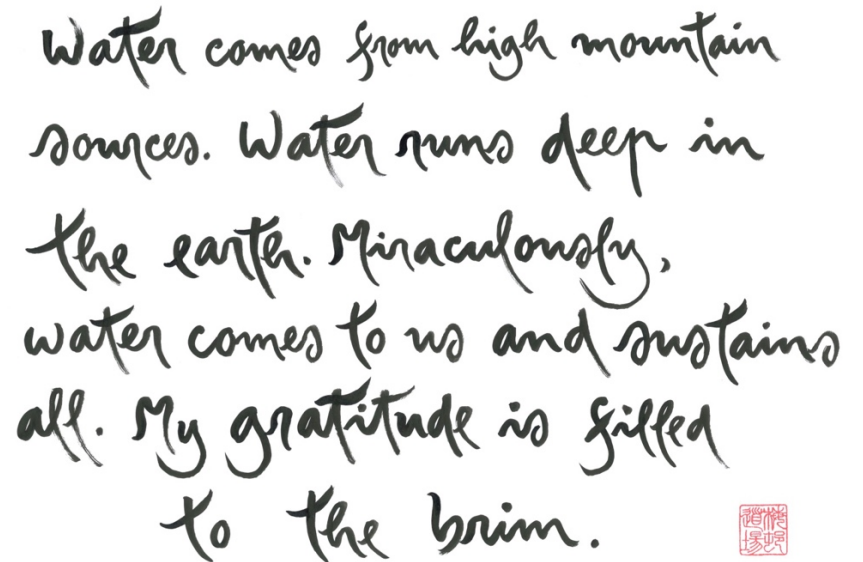 Water comes from high mountain
sources. Water runs deep in
the earth. Miraculously,
water comes to us and sustains
all. My gratitude is filled
to the brim.
梅邨
道場